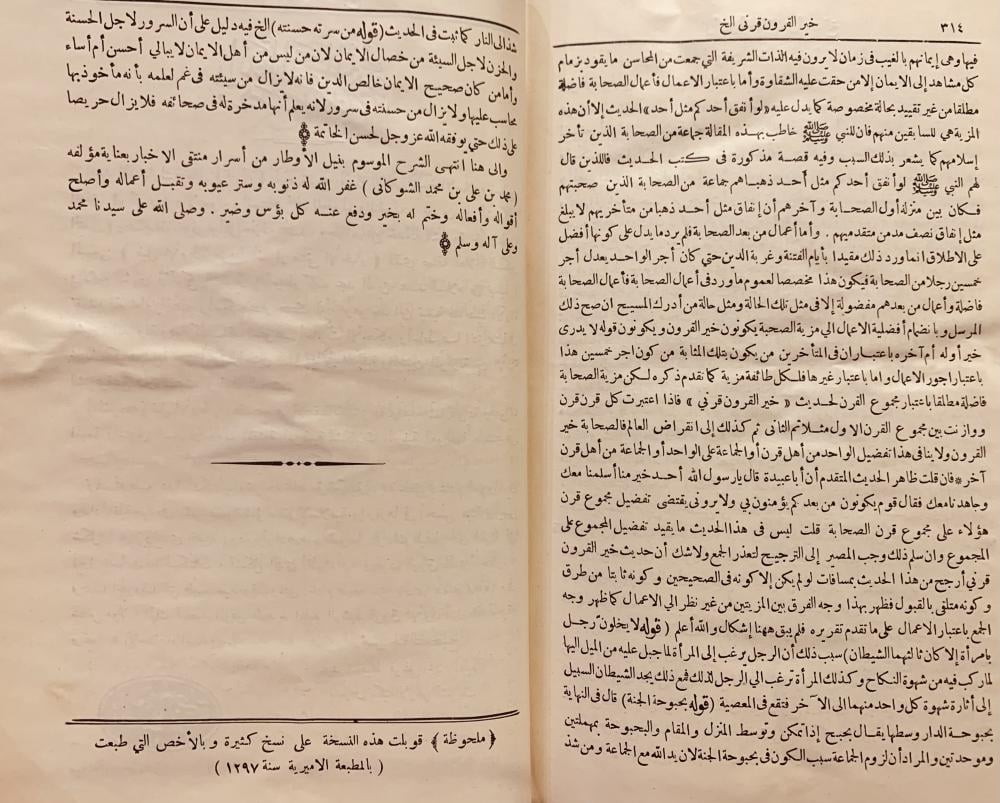 ٣١٤
خير القرون قرنى الخ
فيها وهى إيمانهم بالغيب فى زمان لا يرون فيه الذات الشريفة التي جمعت من المحاسن ما يقود بزمام
كل مشاهد إلى الايمان إلا من حقت عليه الشقاوة وأما باعتبار الاعمال فأعمال الصحابة فاضلة
مطلقا من غير تقييد بحالة مخصوصة كما يدل عليه «لو أنفق أحدكم مثل أحد» الحديث إلا أن هذه
المزية هي للسابقين منهم فان للنبي ﷺ خاطب بهذه المقالة جماعة من الصحابة الذين تأخر
إسلامهم كما يشعر بذلك السبب وفيه قصة مذكورة فى كتب الحديث فاللذين قال
لهم النبي ﷺ لو أنفق أحدكم مثل أحد ذهبا هم جماعة من الصحابة الذين صحبتهم
فكان بين منزلة أول الصحابة وآخرهم أن إنفاق مثل أحد ذهبا من متأخريهم لا يبلغ
مثل إنفاق نصف مد من متقدميهم . وأما أعمال من بعد الصحابة فلم يرد ما يدل على كونها أفضل
على الاطلاق انما ورد ذلك مقيدا بأيام الفتنة وغربة الدين حتى كان أجر الواحد يعدل أجر
خمسين رجلا من الصحابة فيكون هذا مخصصا لعموم ما ورد فى أعمال الصحابة فأعمال الصحابة
فاضلة وأعمال من بعدهم مفضولة إلا فى مثل تلك الحالة ومثل حالة من أدرك المسيح ان صح ذلك
المرسل وبانضمام أفضلية الاعمال الي مزية الصحبة يكونون خير القرون ويكونون قوله لا يدرى
خير أوله أم آخره باعتبار ان فى المتأخرين من يكون بتلك المثابة من كون اجر خمسين هذا
باعتبار اجور الاعمال واما باعتبار غيرها فلكل طائفة مزية كما تقدم ذكره لكن مزية الصحابة
فاضلة مطلقا باعتبار مجموع القرن لحديث « خير القرون قرني » فاذا اعتبرت كل قرن قرن
ووازنت بين مجموع القرن الاول مثلا ثم الثانى ثم كذلك إلى انقراض العالم فالصحابة خير
القرون ولا ينافى هذا تفضيل الواحد من أهل قرن أو الجماعة على الواحد أو الجماعة من أهل قرن
آخر * فان قلت ظاهر الحديث المتقدم أن أبا عبيدة قال يا رسول الله أحد خير منا أسلمنا معك
وجاهدنا معك فقال قوم يكونون من بعدكم يؤمنون بي ولا يرونى يقتضى تفضيل مجموع قرن
هؤلاء على مجموع قرن الصحابة قلت ليس فى هذا الحديث ما يفيد تفضيل المجموع على
المجموع وان سلم ذلك وجب المصير إلى الترجيح لتعذر الجمع ولا شك أن حديث خير القرون
قرني أرجح من هذا الحديث بمسافات لو لم يكن إلا كونه فى الصحيحين وكونه ثابتا من طرق
وكونه متلقى بالقبول فظهر بهذا وجه الفرق بين المزيتين من غير نظر الي الاعمال كما ظهر وجه
الجمع باعتبار الاعمال على ما تقدم تقريره فلم يبق ههنا إشكال والله أعلم (قوله لا يخلونّ رجل
بامرأة إلا كان ثالثهما الشيطان) سبب ذلك أن الرجل يرغب إلى المرأة لما جبل عليه من الميل اليها
لما ركب فيه من شهوة النكاح وكذلك المرأة ترغب الي الرجل لذلك فمع ذلك يجد الشيطان السبيل
إلى أثارة شهوة كل واحد منهما الى الآخر فتقع في المعصية (قوله بحبوحة الجنة) قال فى النهاية
بحبوحة الدار وسطها يقال بحبح إذا تمكن وتوسط المنزل والمقام والبحبوحة بمهملتين
وموحدتين والمراد أن لزوم الجماعة سبب الكون فى بحبوحة الجنة لان يد الله مع الجماعة ومن شذ
شذ الى النار كما ثبت فى الحديث (قوله من سرته حسنته) الخ فيه دليل على أن السرور لاجل الحسنة
والحزن لاجل السيئة من خصال الايمان لان من ليس من أهل الايمان لا يبالي أحسن أم أساء
وأما من كان صحيح الايمان خالص الدين فانه لا يزال من سيئته فى غم لعلمه بأنه مأخوذ بها
محاسب عليها ولا يزال من حسنته فى سرور لانه يعلم أنها مدخرة له فى صحائفه فلا يزال حريصا
على ذلك حتي يوفقه الله عز وجل لحسن الخاتمة
والى هنا انتهى الشرح الموسوم بنيل الأوطار من أسرار منتقى الاخبار بعناية مؤلفه
(محمد بن على بن محمد الشوكانى) غفر الله له ذنوبه وستر عيوبه وتقبل أعماله وأصلح
أقواله وأفعاله وختم له بخير ودفع عنه كل بؤس وضير . وصلى الله على سيدنا محمد
وعلى آله وسلم
﴿ ملحوظة ﴾ قوبلت هذه النسخة على نسخ كثيرة وبالأخص التي طبعت
( بالمطبعة الاميرية سنة ١٢٩٧ )